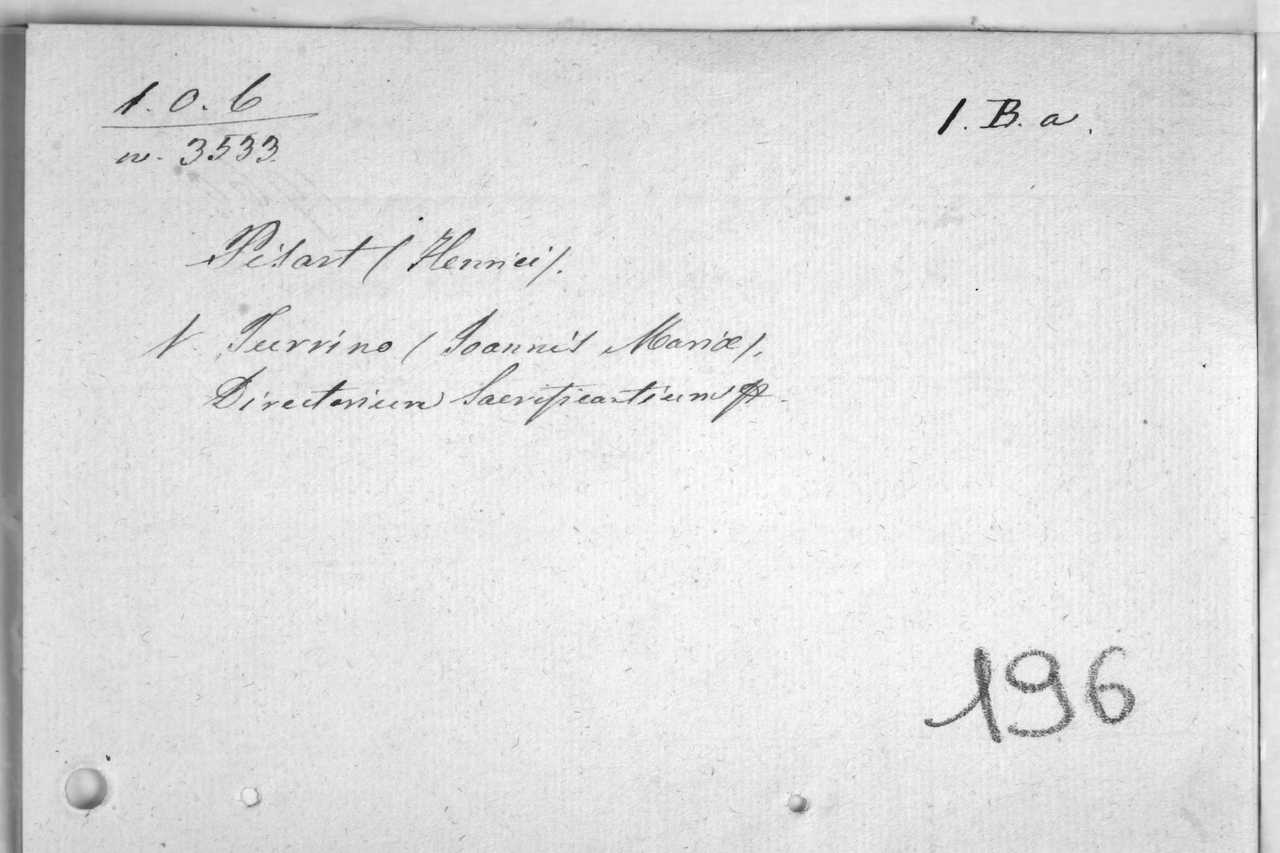 1. O. 6
n. 3533.
1. B. a.
Pisart (Henrici).
V. Turrino (Joannis Mariæ).
Directorium Sacrificantium
196